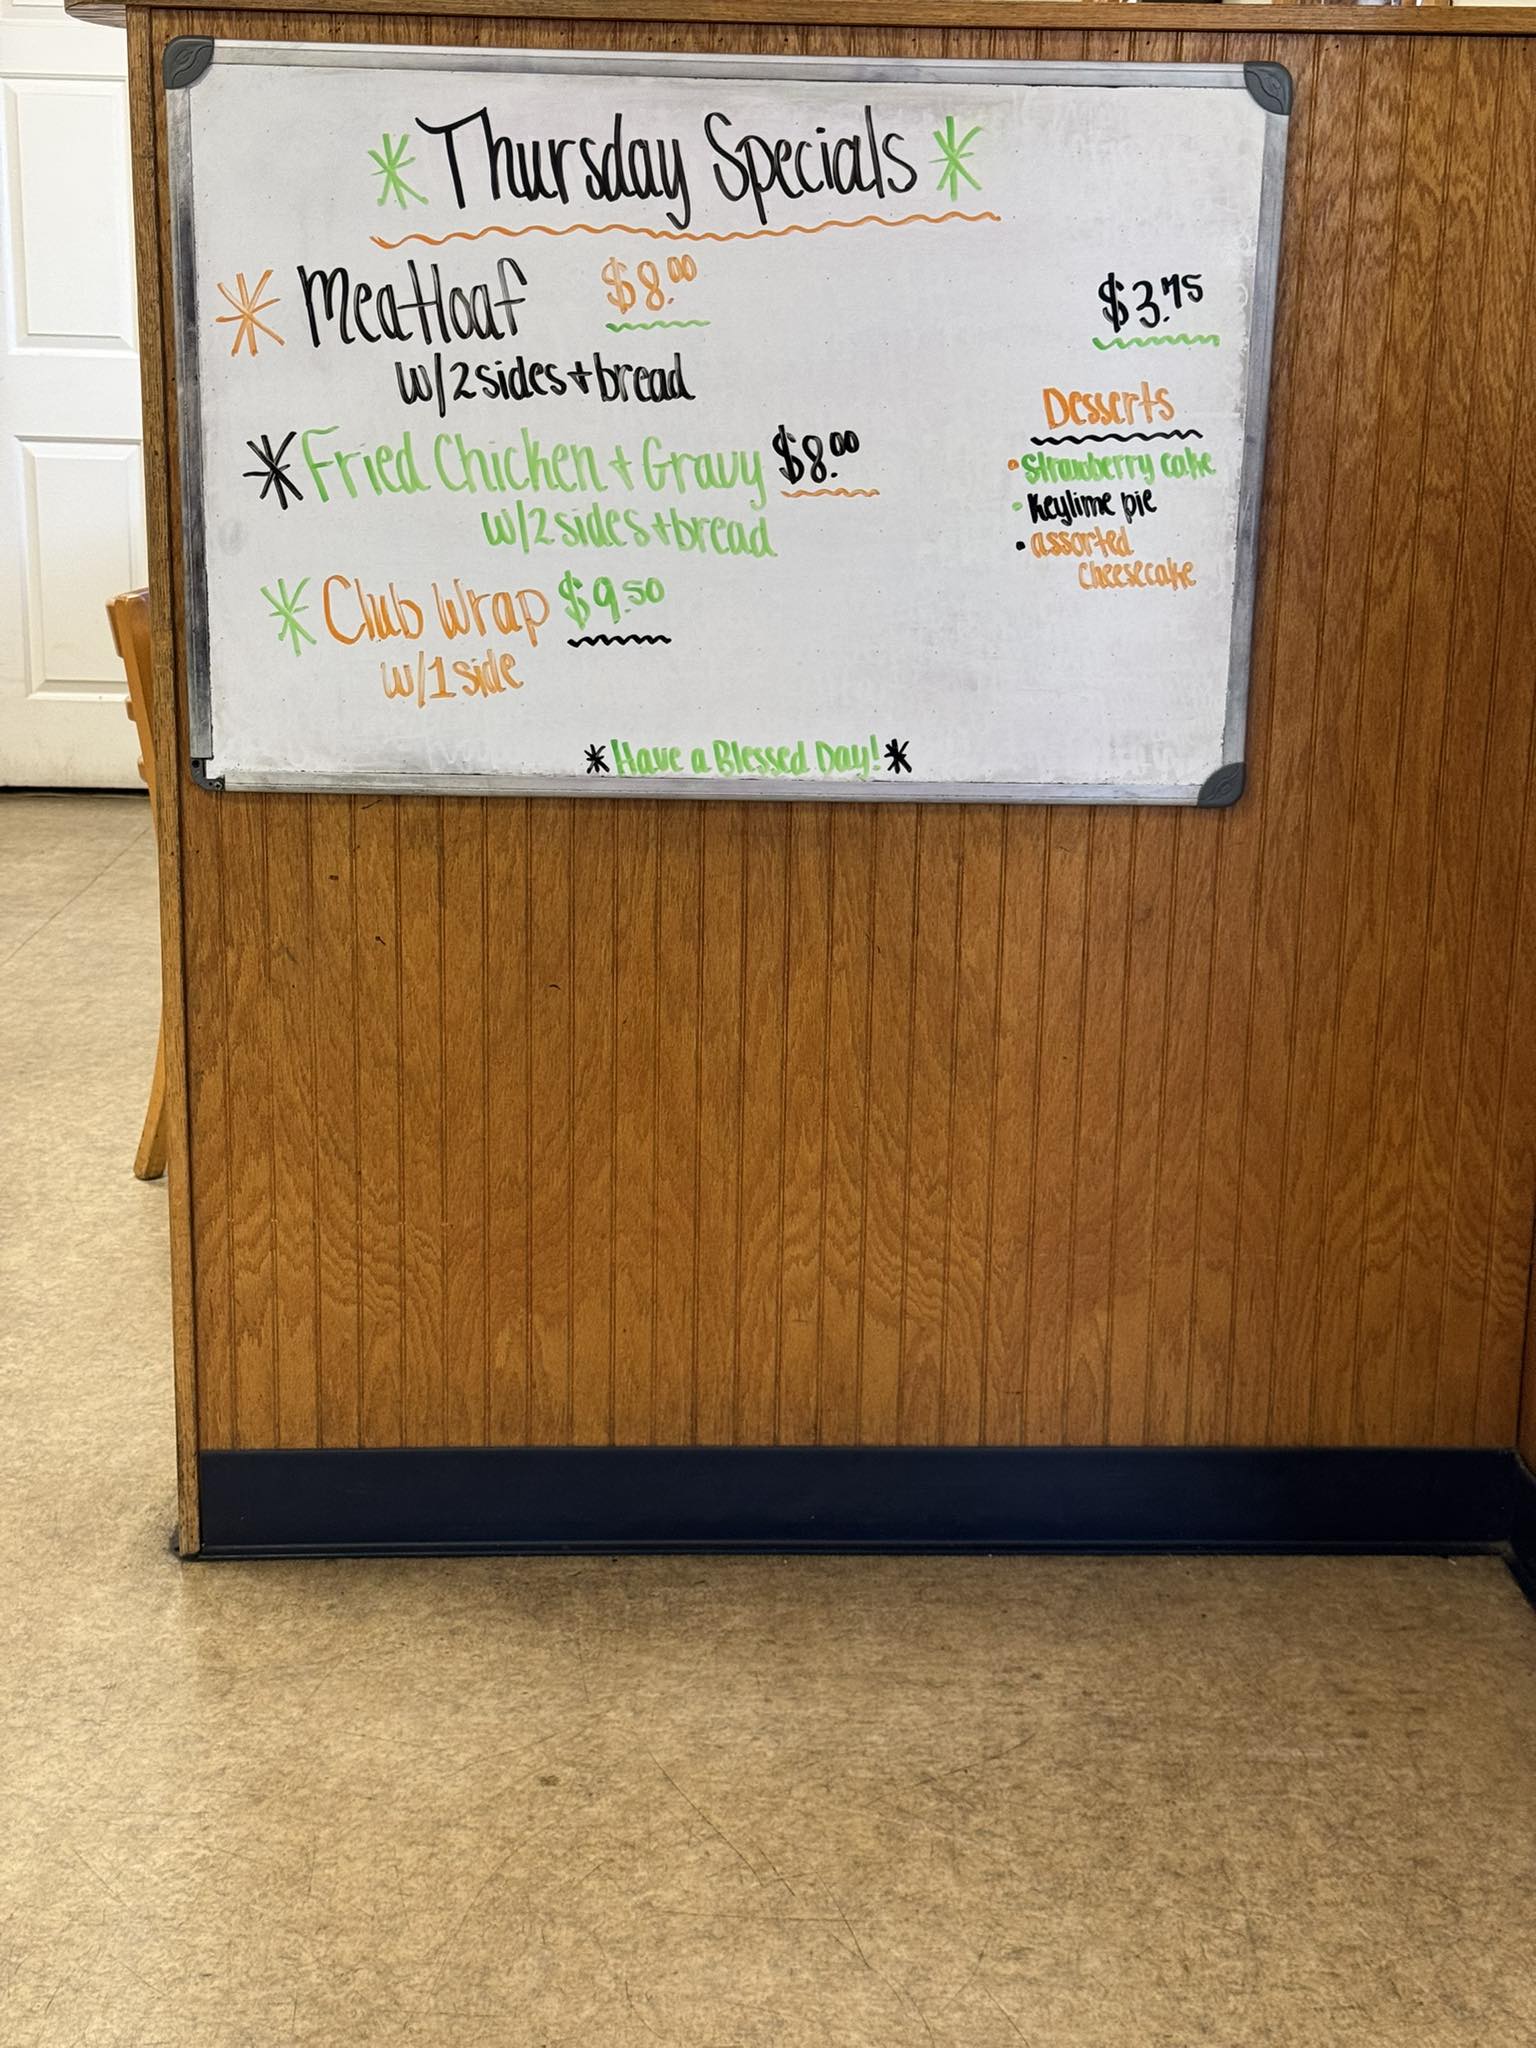 Thursday Specials
Meatloaf $8.00
w/2 sides + bread
Fried Chicken + Gravy $8.00
w/2 sides + bread
Club Wrap $9.50
w/1 side
$3.75
Desserts
• Strawberry cake
• Keylime pie
• assorted
cheesecake
*Have a Blessed Day!*